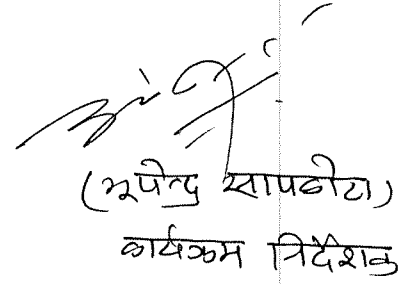 (भूपेन्द्र सापकोटा)
कार्यक्रम निर्देशक